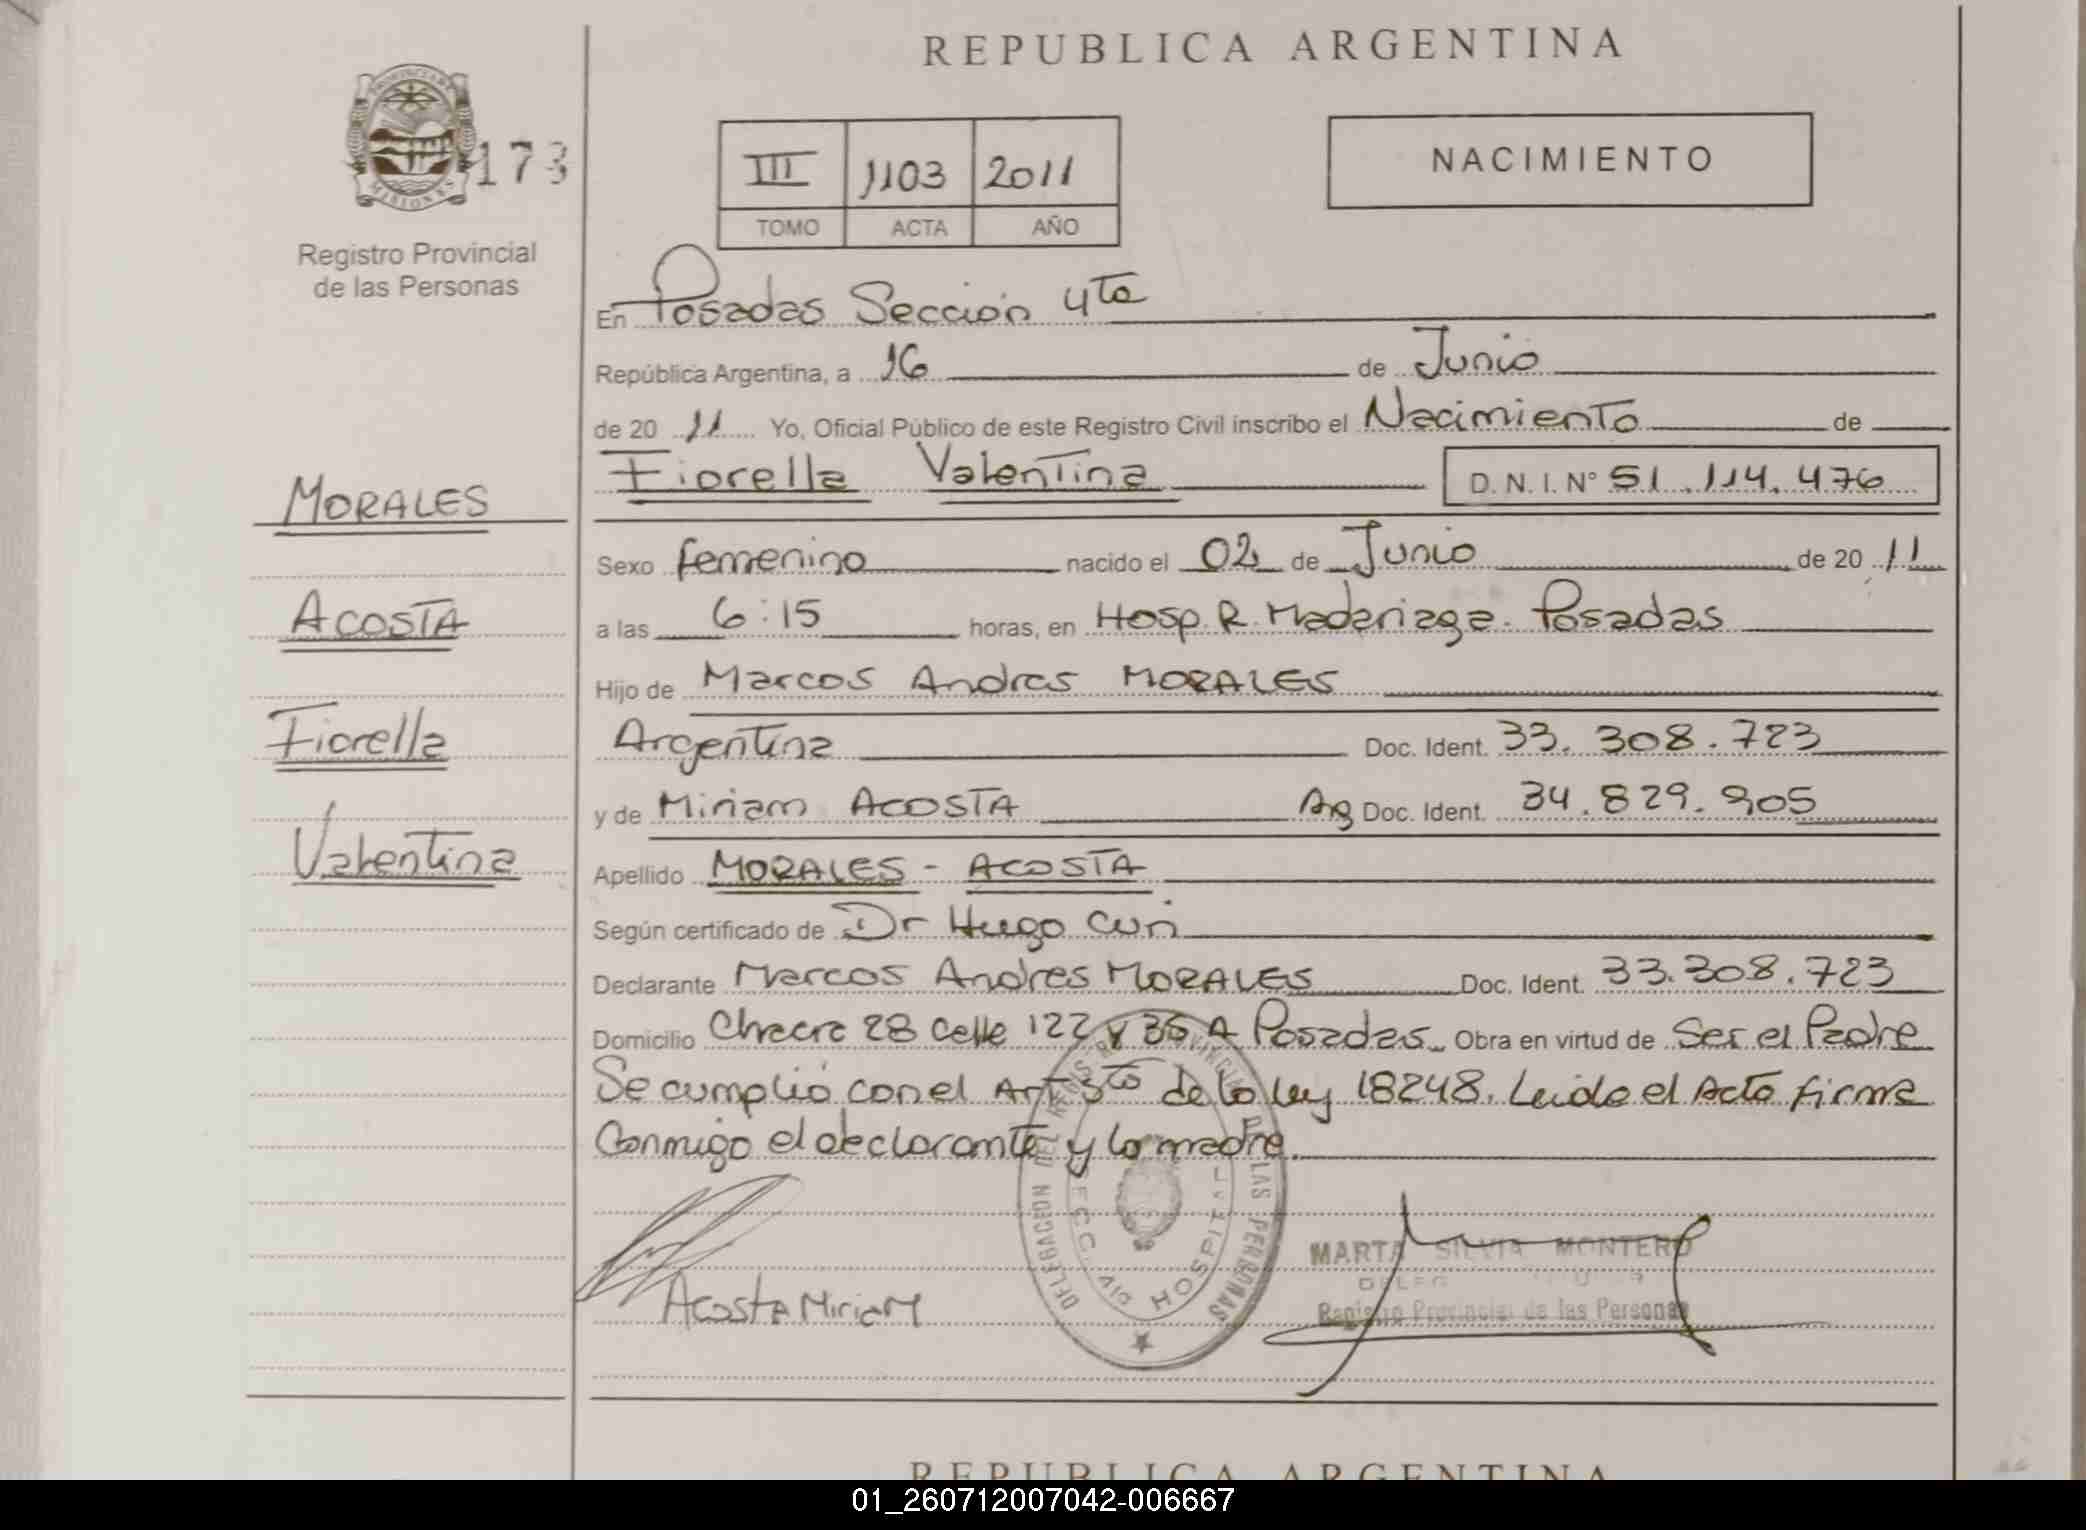 REPUBLICA ARGENTINA
PROVINCIA DE MISIONES
173
Registro Provincial
de las Personas
III 1103 2011
TOMO ACTA AÑO
NACIMIENTO
En Posadas Sección 4ta
República Argentina, a 16 de Junio
de 20 11 Yo, Oficial Público de este Registro Civil inscribo el Nacimiento de
Fiorella Valentina D. N. I. N° 51.114.476
MORALES
ACOSTA
Fiorella
Valentina
Sexo femenino nacido el 02 de Junio de 20 11
a las 6:15 horas, en Hosp. R. Madariaga. Posadas
Hijo de Marcos Andres MORALES
Argentina Doc. Ident. 33.308.723
y de Miriam ACOSTA Arg Doc. Ident. 34.829.905
Apellido MORALES - ACOSTA
Según certificado de Dr Hugo Curi
Declarante Marcos Andres MORALES Doc. Ident. 33.308.723
Domicilio Chacra 28 Calle 122 y 36 A Posadas Obra en virtud de Ser el Padre
Se cumplió con el Art 3to de la ley 18248. Leida el Acta firma
Conmigo el declarante y la madre.
DELEGACION DEL REGISTRO PROVINCIAL DE LAS PERSONAS
SECC. HOSPITAL
Acosta Miriam
MARTA SILVIA MONTERO
Registro Provincial de las Personas
REPUBLICA ARGENTINA
01_260712007042-006667